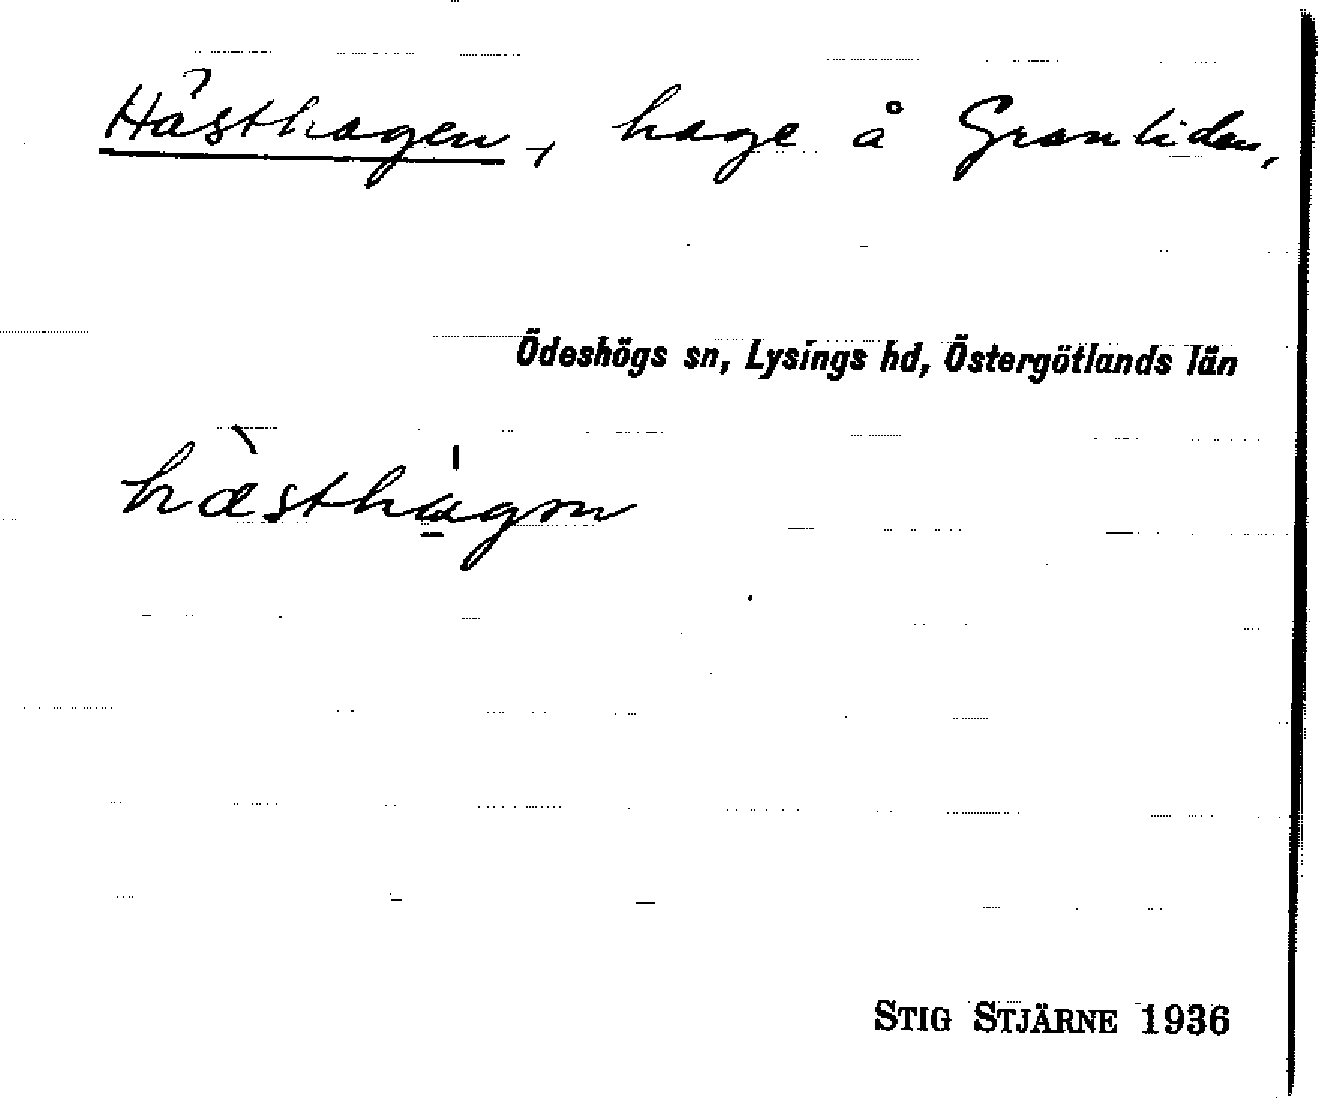 Hästhagen, hage å Granliden,
Ödeshögs sn, Lysings hd, Östergötlands län
hæ̀sthágən
STIG STJÄRNE 1936